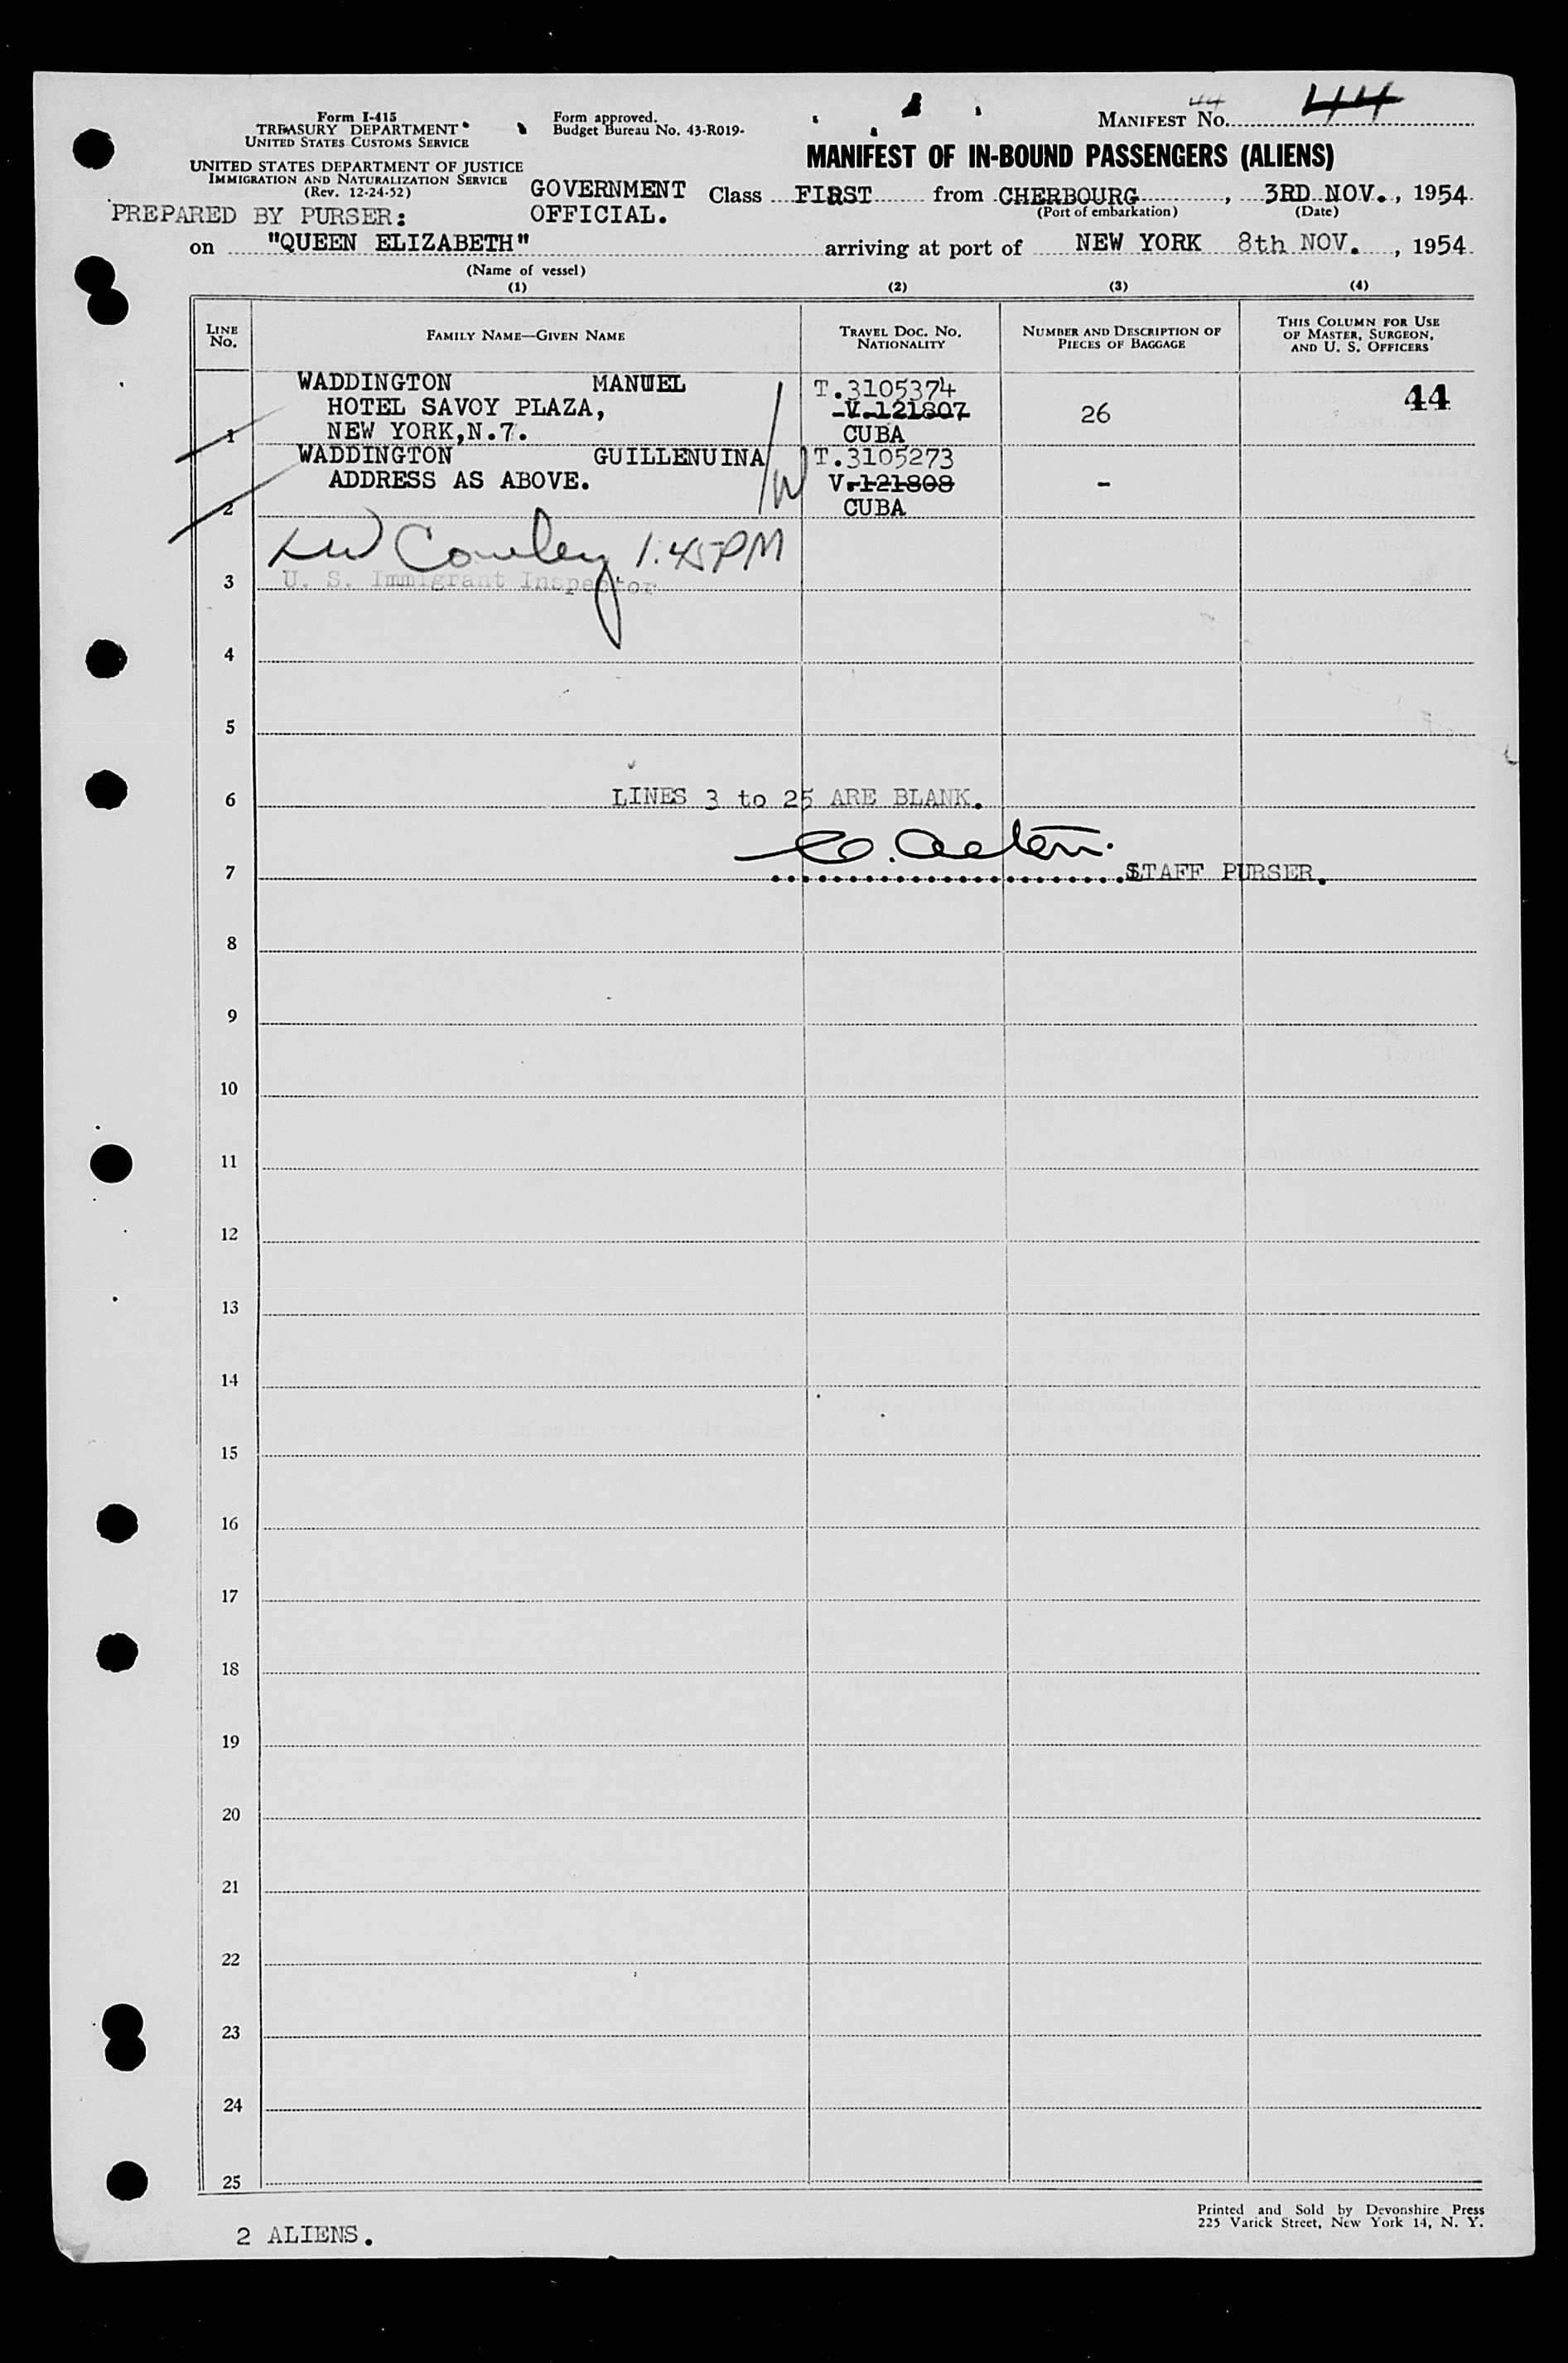 Form I-415
TREASURY DEPARTMENT
UNITED STATES CUSTOMS SERVICE
UNITED STATES DEPARTMENT OF JUSTICE
IMMIGRATION AND NATURALIZATION SERVICE
(Rev. 12-24-52)
Form approved.
Budget Bureau No. 43-R019-
MANIFEST NO. 44 44
MANIFEST OF IN-BOUND PASSENGERS (ALIENS)
PREPARED BY PURSER:
GOVERNMENT
OFFICIAL.
Class FIRST from CHERBOURG, 3RD NOV., 1954
(Port of embarkation) (Date)
on "QUEEN ELIZABETH" arriving at port of NEW YORK 8th NOV., 1954
(Name of vessel)
(1) (2) (3) (4)
LINE NO.
FAMILY NAME—GIVEN NAME
TRAVEL DOC. NO.
NATIONALITY
NUMBER AND DESCRIPTION OF
PIECES OF BAGGAGE
THIS COLUMN FOR USE
OF MASTER, SURGEON,
AND U. S. OFFICERS
WADDINGTON MANUEL T.3105374
HOTEL SAVOY PLAZA, V.121807 26 44
1 NEW YORK,N.Y. CUBA
WADDINGTON GUILLENUINA T.3105273
ADDRESS AS ABOVE. V.121808 -
2 CUBA
Cowley 1:45PM
3 U. S. Immigrant Inspector
4
5
6 LINES 3 to 25 ARE BLANK.
7 STAFF PURSER.
8
9
10
11
12
13
14
15
16
17
18
19
20
21
22
23
24
25
2 ALIENS.
Printed and Sold by Devonshire Press
225 Varick Street, New York 14, N. Y.